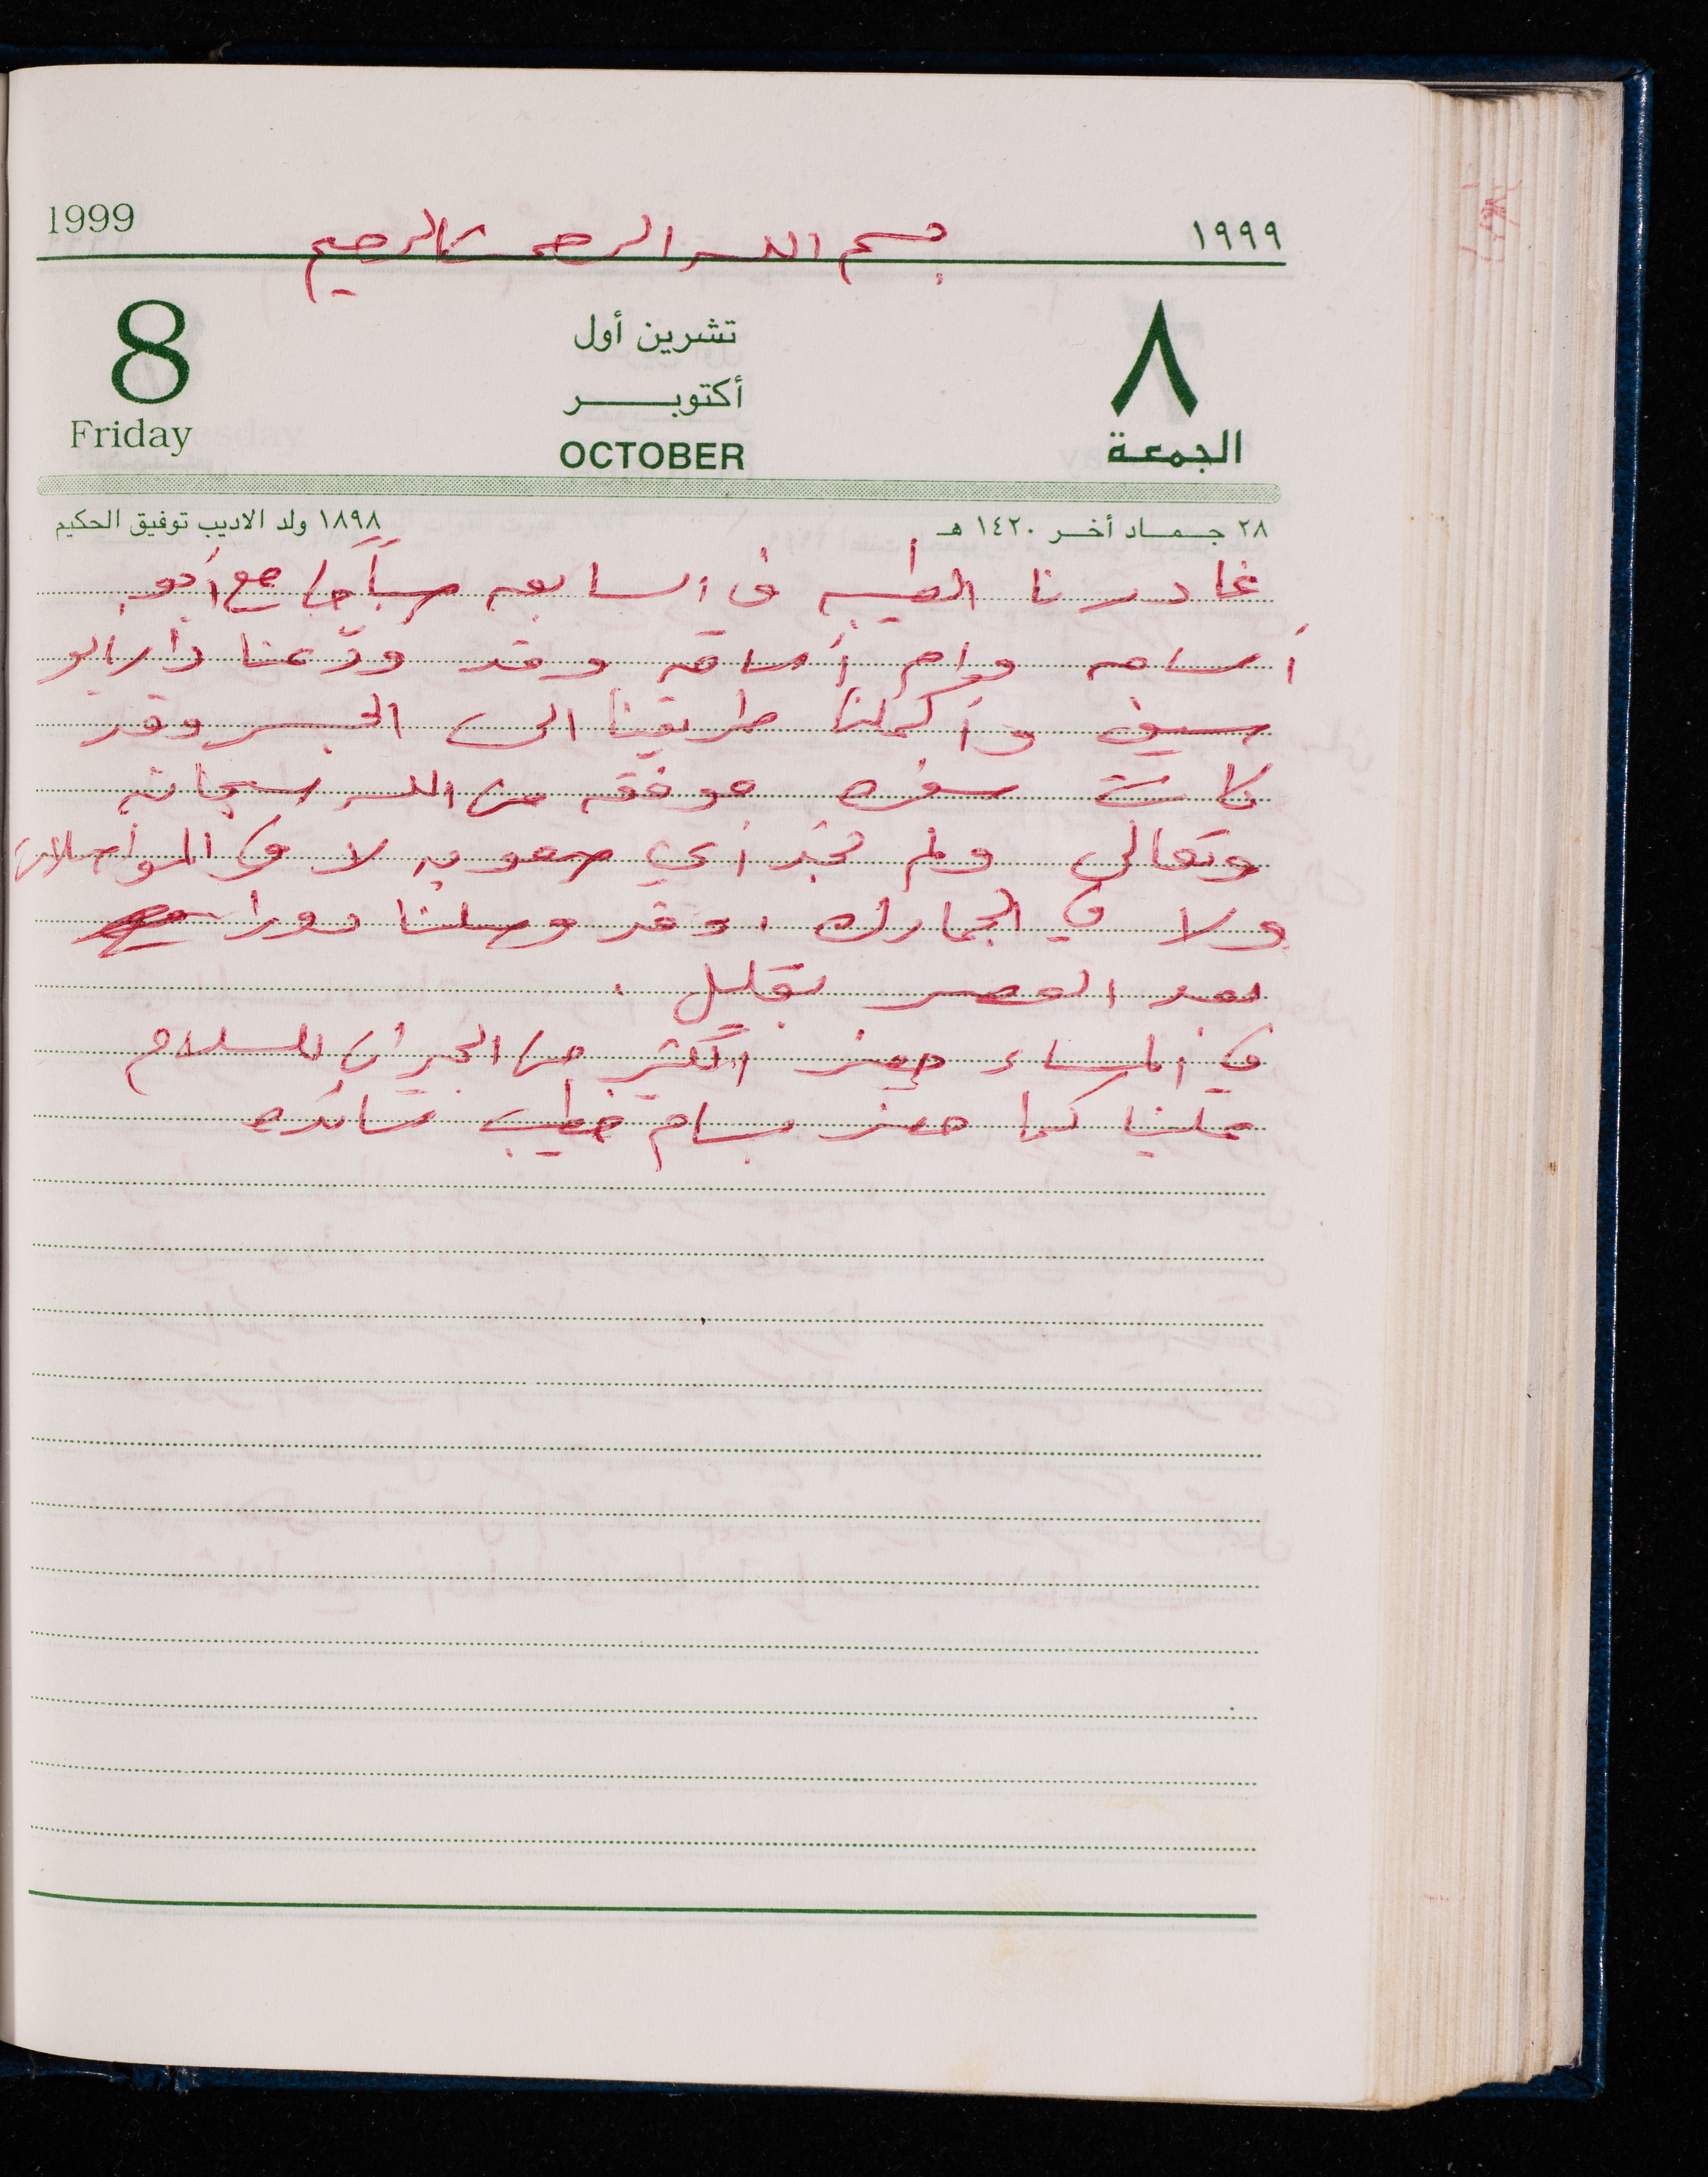 1999 بسم الله الرحمن الرحيم ١٩٩٩
8 تشرين أول ٨
أكتوبر
Friday OCTOBER الجمعة
٢٨ جماد أخر ١٤٢٠ هـ ١٨٩٨ ولد الاديب توفيق الحكيم
غادرنا الطيبه في السابعه صباحا مع أبو
أسامه وام أسامه وقد ودّعنا دار ابو
سيف وأكملنا طريقنا الى الجسر وقد
كانت سفره موفقه من الله سبحانه
وتعالى ولم نجد أي صعوبه لا في المواصلات
ولا في الجمارك. وقد وصلنا نورا
بعد العصر بقليل.
في المساء حضر الكثير من الجيران للسلام
علينا كما حضر بسام خطيب